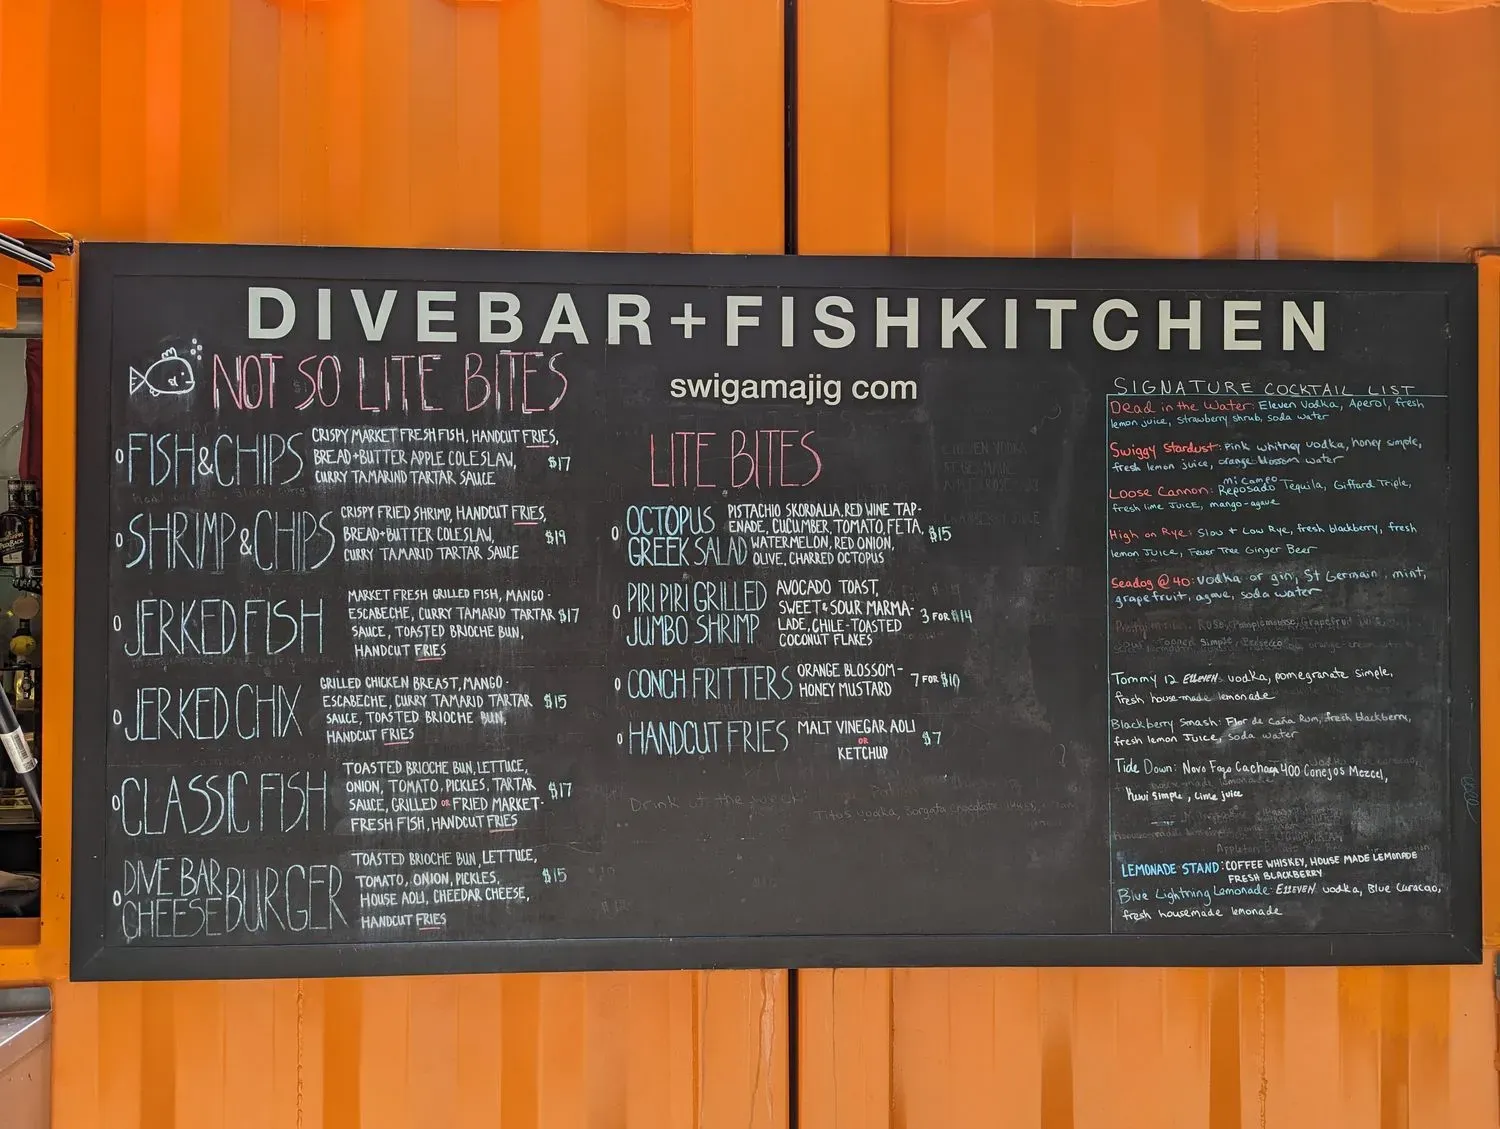 DIVEBAR+FISHKITCHEN
swigamajig com
NOT SO LITE BITES
FISH & CHIPS
CRISPY MARKET FRESH FISH, HANDCUT FRIES,
BREAD+BUTTER APPLE COLESLAW, $17
CURRY TAMARIND TARTAR SAUCE
SHRIMP & CHIPS
CRISPY FRIED SHRIMP, HANDCUT FRIES,
BREAD+BUTTER COLESLAW, $19
CURRY TAMARID TARTAR SAUCE
JERKED FISH
MARKET FRESH GRILLED FISH, MANGO-
ESCABECHE, CURRY TAMARID TARTAR $17
SAUCE, TOASTED BRIOCHE BUN,
HANDCUT FRIES
JERKED CHIX
GRILLED CHICKEN BREAST, MANGO-
ESCABECHE, CURRY TAMARID TARTAR $15
SAUCE, TOASTED BRIOCHE BUN,
HANDCUT FRIES
CLASSIC FISH
TOASTED BRIOCHE BUN, LETTUCE,
ONION, TOMATO, PICKLES, TARTAR $17
SAUCE, GRILLED OR FRIED MARKET-
FRESH FISH, HANDCUT FRIES
DIVE BAR
CHEESE BURGER
TOASTED BRIOCHE BUN, LETTUCE,
TOMATO, ONION, PICKLES, $15
HOUSE AOLI, CHEEDAR CHEESE,
HANDCUT FRIES
LITE BITES
OCTOPUS
GREEK SALAD
PISTACHIO SKORDALIA, RED WINE TAP-
ENADE, CUCUMBER, TOMATO, FETA, $15
WATERMELON, RED ONION,
OLIVE, CHARRED OCTOPUS
PIRI PIRI GRILLED
JUMBO SHRIMP
AVOCADO TOAST,
SWEET & SOUR MARMA- 3 FOR $14
LADE, CHILE-TOASTED
COCONUT FLAKES
CONCH FRITTERS
ORANGE BLOSSOM- 7 FOR $10
HONEY MUSTARD
HANDCUT FRIES
MALT VINEGAR AOLI $7
OR
KETCHUP
SIGNATURE COCKTAIL LIST
Dead in the Water: Eleven Vodka, Aperol, fresh
lemon juice, strawberry shrub, soda water
Swiggy Stardust: Pink whitney vodka, honey simple,
fresh lemon juice, orange blossom water
mi campo
Loose Cannon: Reposado Tequila, Giffard Triple,
fresh lime Juice, mango-agave
High on Rye: Slow + Low Rye, fresh blackberry, fresh
lemon Juice, Fever Tree Ginger Beer
Seadog @ 40: vodka or gin, St Germain, mint,
grapefruit, agave, soda water
Tommy 12 E11EVEN vodka, pomegranate simple,
fresh house-made lemonade
Blackberry Smash: Flor de Caña Rum, fresh blackberry,
fresh lemon Juice, soda water
Tide Down: Novo Fogo Cachaça 400 Conejos Mezcel,
Kiwi Simple, Lime juice
LEMONADE STAND: COFFEE WHISKEY, HOUSE MADE LEMONADE
FRESH BLACKBERRY
Blue Lightning Lemonade: E11EVEN vodka, Blue Curacao,
fresh housemade lemonade